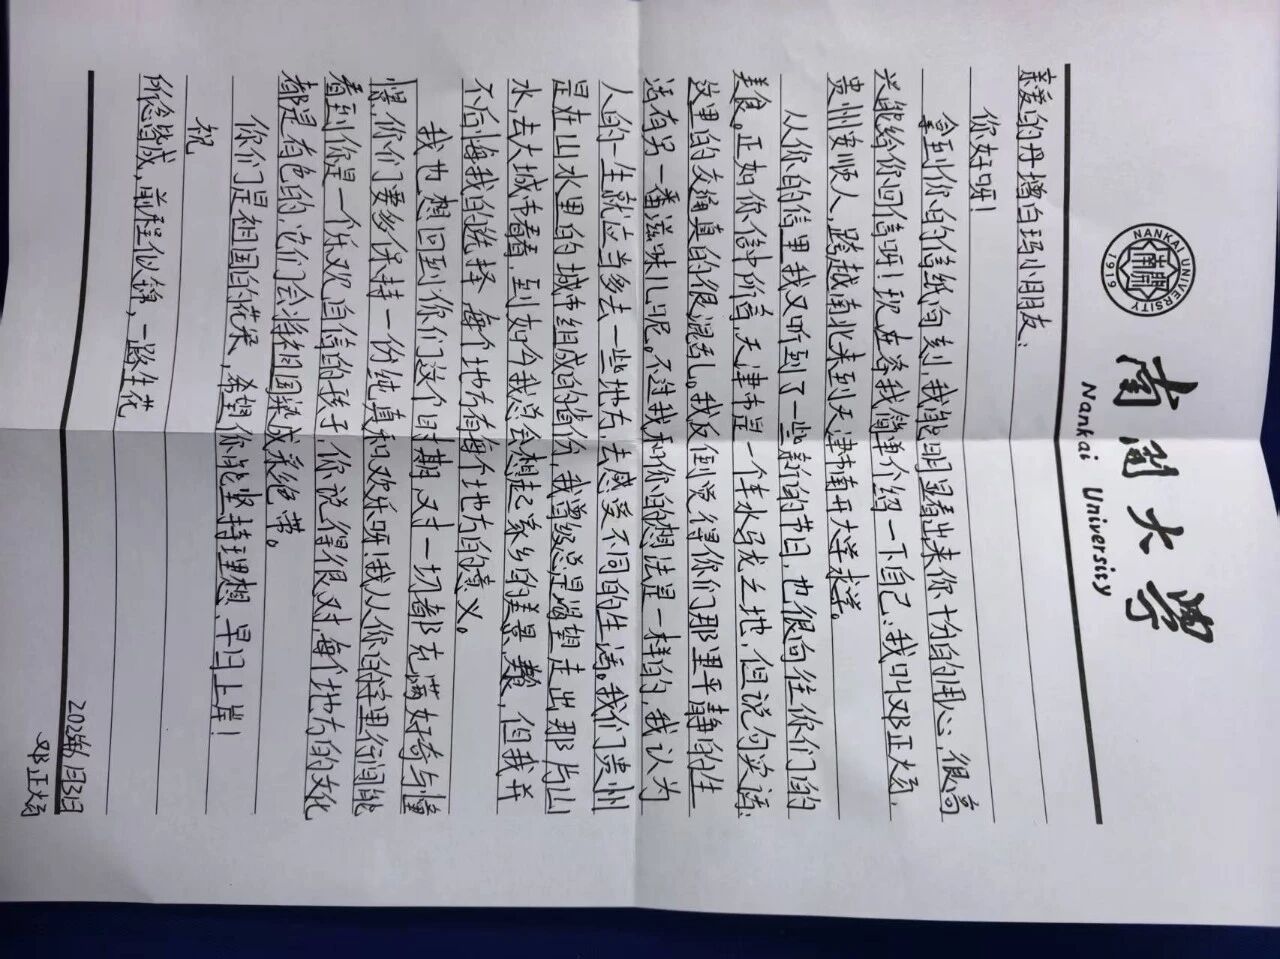 NANKAI UNIVERSITY
1919
南開
南开大学
Nankai University
亲爱的丹增白玛小朋友：
你好呀！
拿到你的信纸的刻，我能明显看出来你十分的用心，很高
兴能给你回信呀！现在容我简单介绍一下自己：我叫邓正炀，
贵州安顺人，跨越南北来到天津市南开大学求学。
从你的信里我又听到了一些新的节日，也很向往你们的
美食。正如你信中所言，天津市是一个车水马龙之地，但说句实话
这里的交通真的很混乱。我反倒觉得你们那里平静的生
活有另一番滋味儿呢。不过我和你的想法是一样的，我认为
人的一生就应当多去一些地方，去感受不同的生活。我们贵州
是在山水里的城市组成的省份，我曾经总是渴望走出那片山
水去大城市看看，到如今我总会想起家乡的美景、美餐，但我并
不后悔我的选择，每个地方有每个地方的意义。
我也想回到你们这个时期，对一切都充满好奇与憧
憬，你们要多保持一份纯真和欢乐呀！我从你的字里行间能
看到你是一个乐观自信的孩子，你说得很对，每个地方的文化
都是有色的，它们会将祖国染成彩绝带。
你们是祖国的花朵，希望你能坚持理想，早日上岸！
祝
所念皆成，前程似锦，一路生花
邓正炀